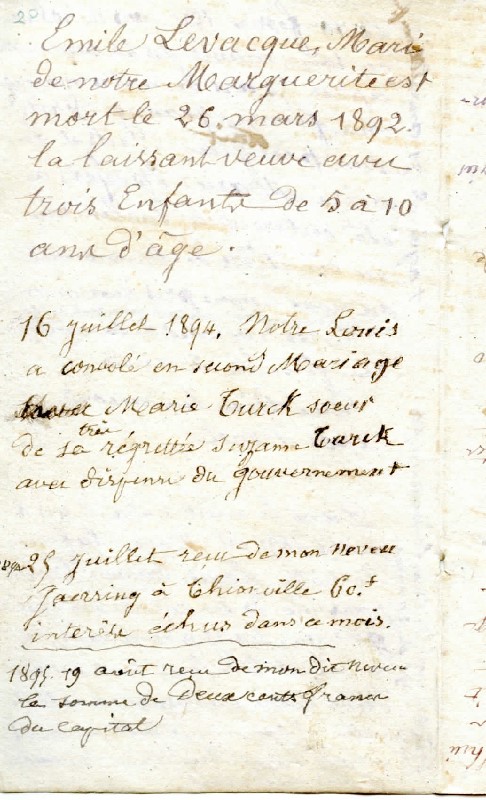 Emile Levacque, Mari
de notre Marguerite est
mort le 26 mars 1892
la laissant veuve avec
trois Enfants de 5 à 10
ans d'âge.
16 juillet 1894. Notre Louis
a convolé en second Mariage
avec Marie Turck soeur
de sa très régrettée Suzanne Turck
avec dispense du gouvernement
25 juillet reçu de mon neveu
à Thionville 60 f
intérêts échus dans ce mois.
1895. 19 août reçu de mon dit neveu
la somme de Deux cents francs
du capital